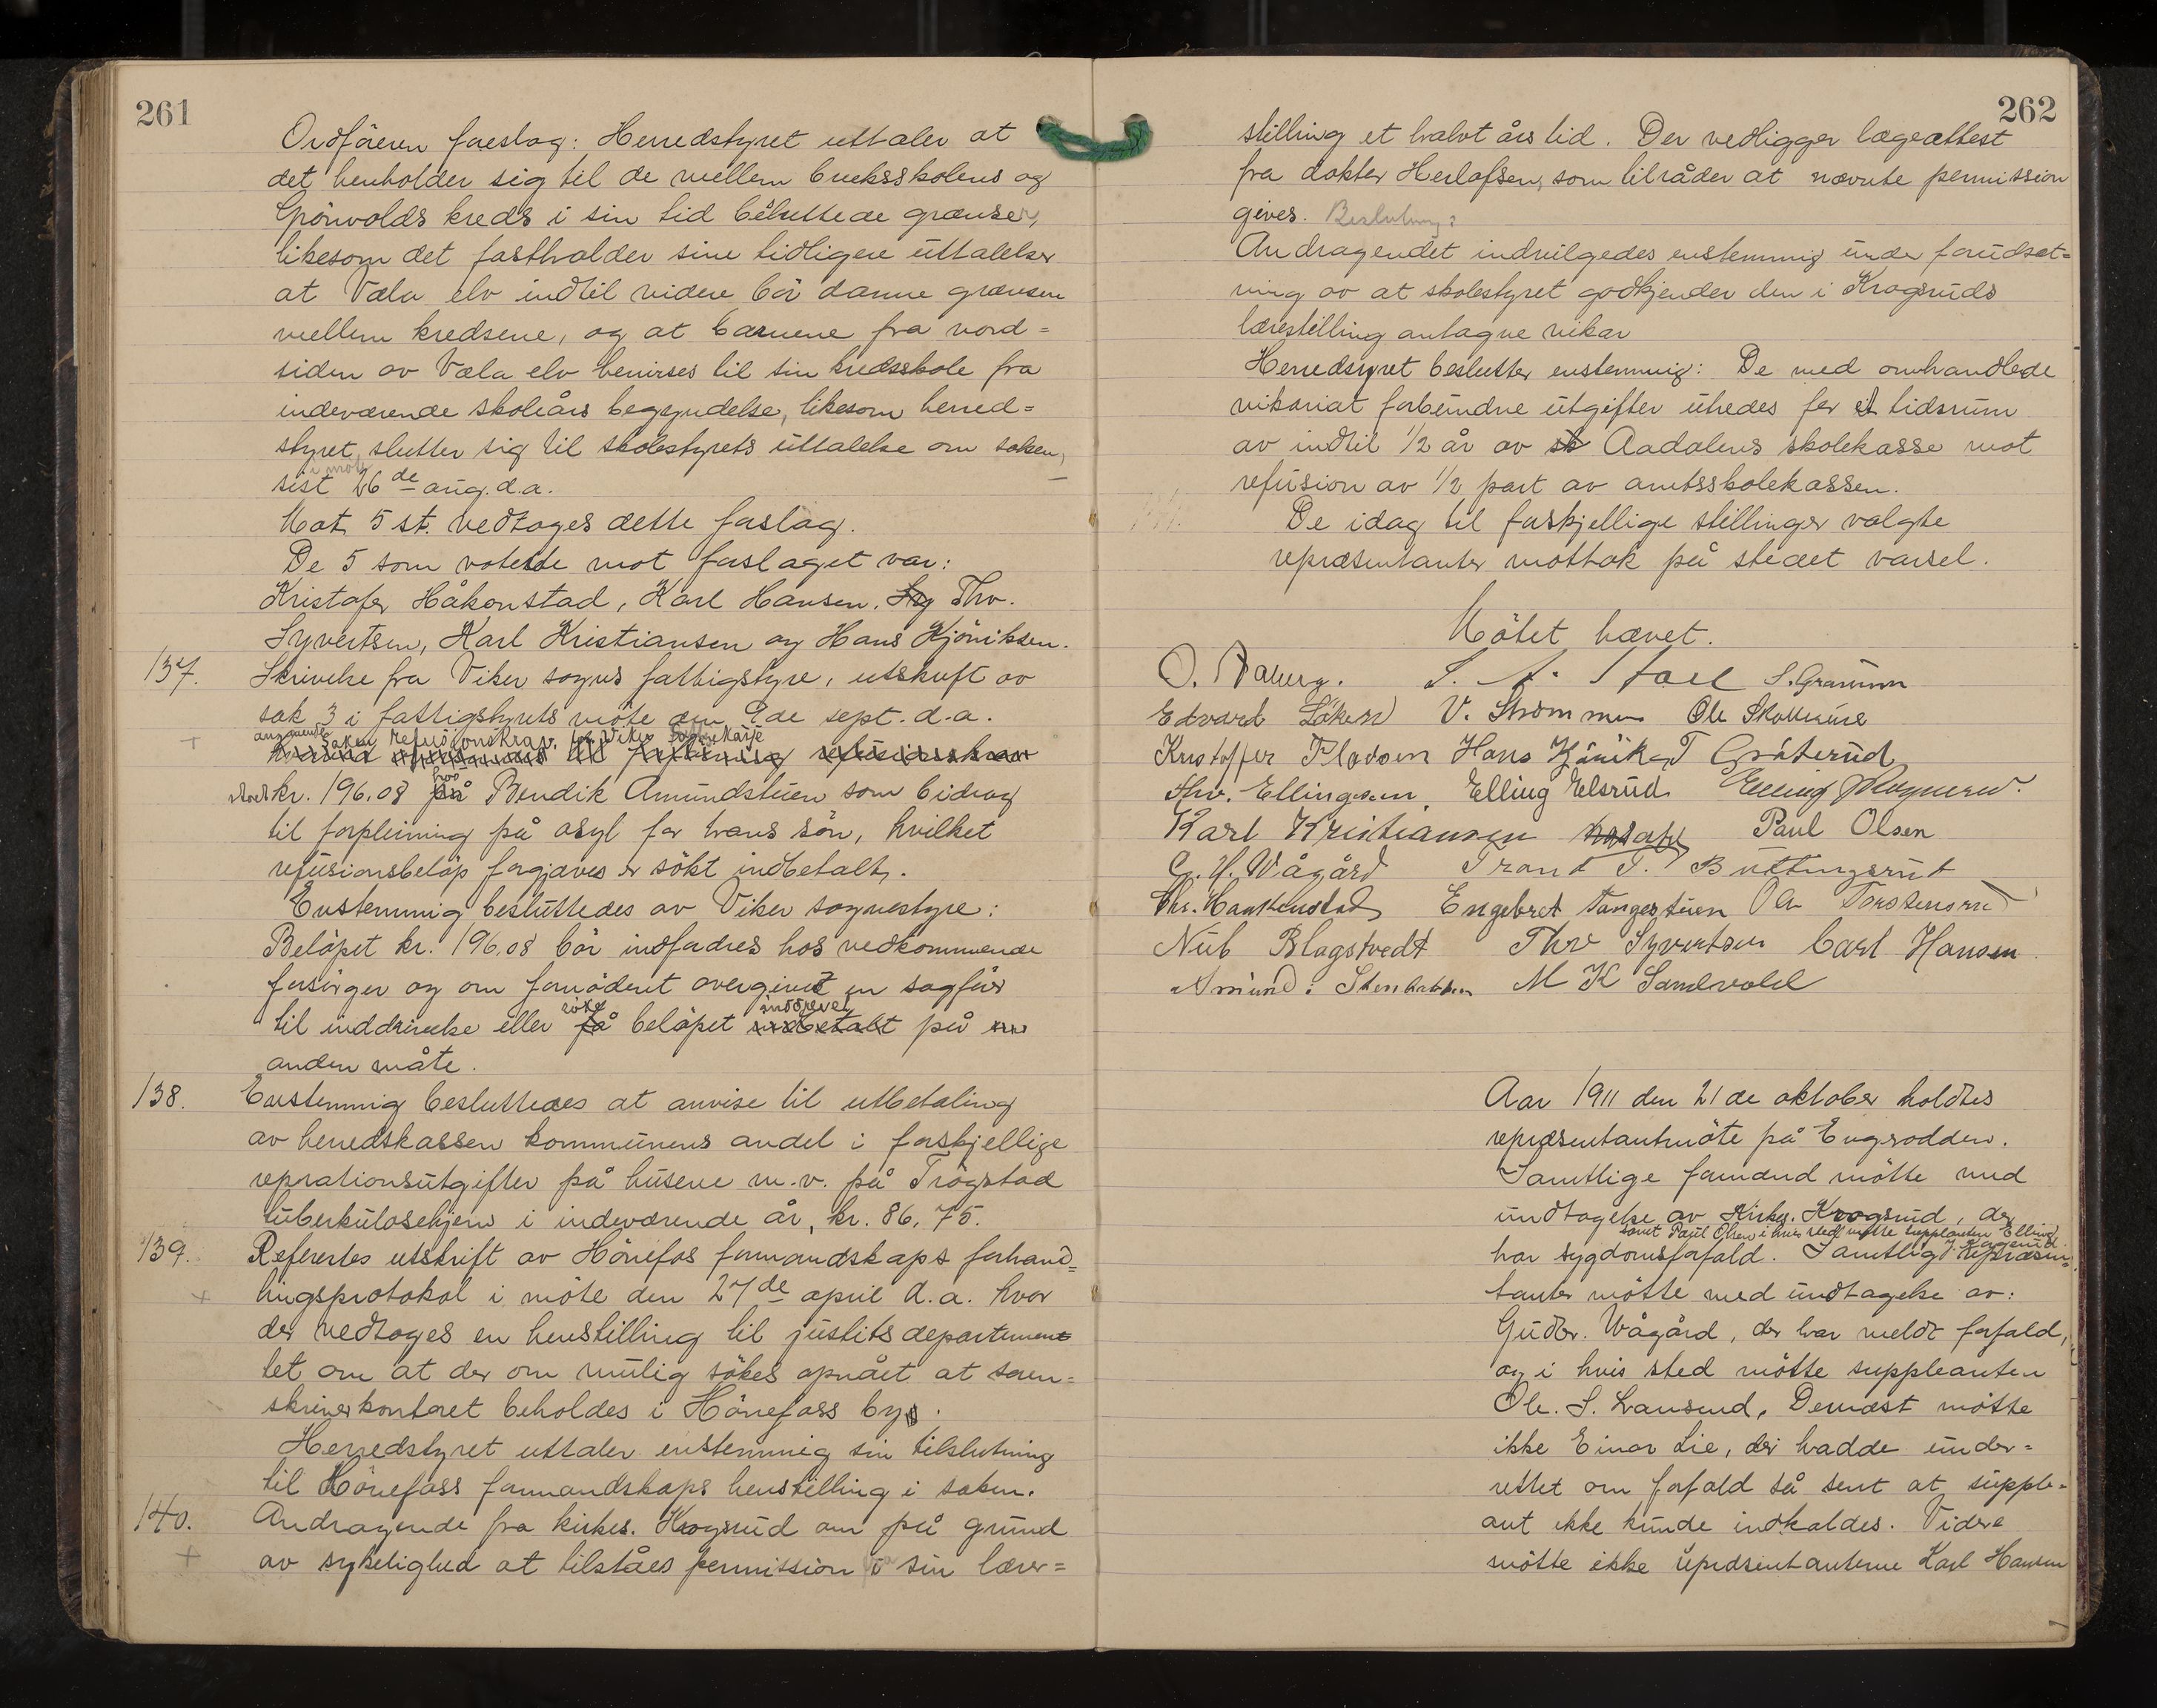 261
Ordföreren foreslog: Herredstyret uttaler at
det henholder sig til de mellem bruksskolens og
Grönvolds kreds i sin tid besluttede grænser,
likesom det fastholder sine tidligere uttalelser
at Væla elv indtil videre bör danne grænsen
mellem kredsene, og at barnene fra nord=
siden av Væla elv henvises til sin kredsskole fra
indeværende skoleårs begyndelse, likesom herred=
styret slutter sig til skolestyrets uttalelse om saken,
i möte
sist 26de aug. d.a.
Mot 5 st. vedtoges dette forslag.
De 5 som voterte mot forslaget var:
Kristofer Håkonstad, Karl Hansen, Thv.
Syvertsen, Karl Kristiansen og Hans Kjöniksen.
137. Skrivelse fra Viker sogns fattigstyre, utskrift av
sak 3 i fattigstyrets möte den 9de sept. d.a.
angaaende saken refusjonskrav for Viker kasse
stort kr. 196.08 hos Bendik Amundstuen som bidrag
til forpleining på asyl for hans sön, hvilket
refusionsbelöp forgjæves er sökt indbetalt.
Enstemmig besluttedes av Viker sognestyre:
Belöpet kr. 196,08 bör indfordres hos vedkommende
forsörger og om fornödent overgives en sagförer
til inddrivelse eller sökt belöpet inddrevet på
anden måte.
138. Enstemmig besluttedes at anvise til utbetaling
av herredskassen kommunens andel i forskjellige
reprationsutgifter på husene m.v. på Trögstad
tuberkulosehjem i indeværende år, kr. 86,75.
139. Referertes utskrift av Hönefos formandskaps forhand=
lingsprotokol i möte den 27de april d.a. hvor
der vedtoges en henstilling til justitsdepartement
tet om at der om mulig sökes opnået at soren=
skriverkontoret beholdes i Hönefoss by.
Herredstyret uttaler enstemmig sin tilslutning
til Hönefoss formandskaps henstilling i saken.
140. Andragende fra kirkes. Krogsrud om på grund
av sykelighed at tilståes permission i sin lærer=
262
stilling et halvt års tid. Der vedligger lægeattest
fra doktor Herlofsen, som tilråder at nævnte permission
gives. Beslutning:
Andragendet indvilgedes enstemmig under forudsæt=
ning av at skolestyret godkjender den i Krogsruds
lærestilling antagne vikar
Herredsyret beslutter enstemmig: De med omhandlede
vikariat forbundne utgifter utredes for et tidsrum
av indtil 1/2 år av Aadalens skolekasse mot
refusion av 1/2 part av amtsskolekassen.
De idag til forskjellige stillinger valgte
repræsentanter mottok på stedet varsel.
Mötet hævet.
O. Aaberg. S. Granum
Edvard Löken V. Strömmen Ole
Kristoffer Hans Kjönik T Gråterud
Thv. Ellingsen, Elling Elsrud
Karl Kristiansen Paul Olsen
G. H. Wågård Trond T. Buttingsrud
Engebret Tangestuen Ole Torstensrud
Nub Blagstvedt Thv Syvertsen Carl Hansen
Amund M K Sandvold
Aar 1911 den 21de oktober holdtes
repræsentantmöte på Engrodden.
Samtlige formænd mötte med
undtagelse av Kirkes. Krogsrud, der
samt Paul Olsen i hvis sted mötte suppleanten Elling
har sygdomsforfald. Samtlige repræsen=
tanter mötte med undtagelse av:
Gudbr. Wågård, der har meldt forfald,
og i hvis sted mötte suppleanten
Ole. S. Lansrud, Dernæst mötte
ikke Einar Lie, der hadde under=
rettet om forfald så sent at supple=
ant ikke kunde indkaldes. Videre
mötte ikke repræsentanterne Karl Hansen